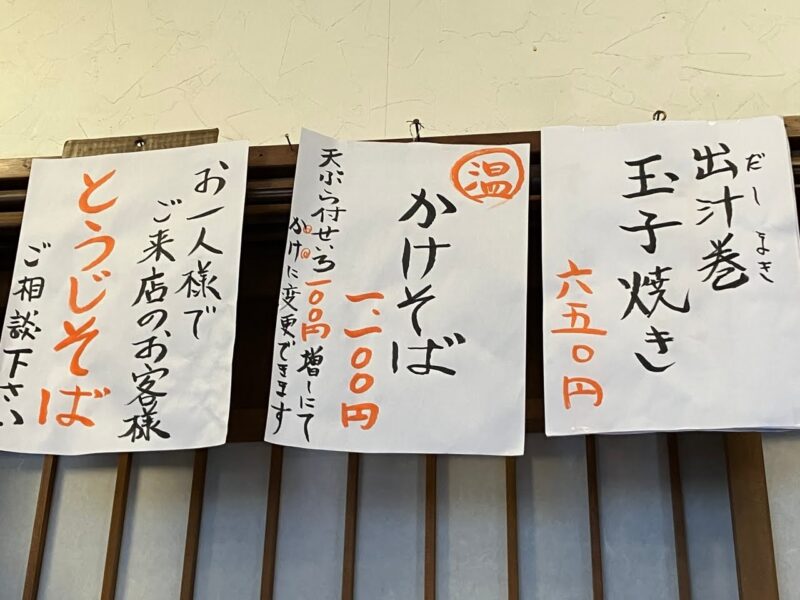 だしまき
出汁巻
玉子焼き
六五〇円
温
かけそば
一、一〇〇円
天ぷら付せいろ一〇〇円増しにて
かけに変更できます
お一人様で
ご来店のお客様
とうじそば
ご相談下さい